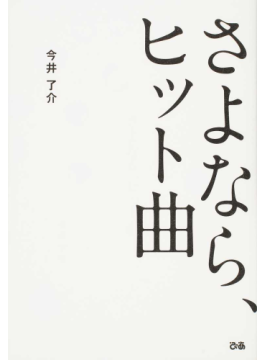 さよなら、
ヒット曲
今井 了介
ぴあ